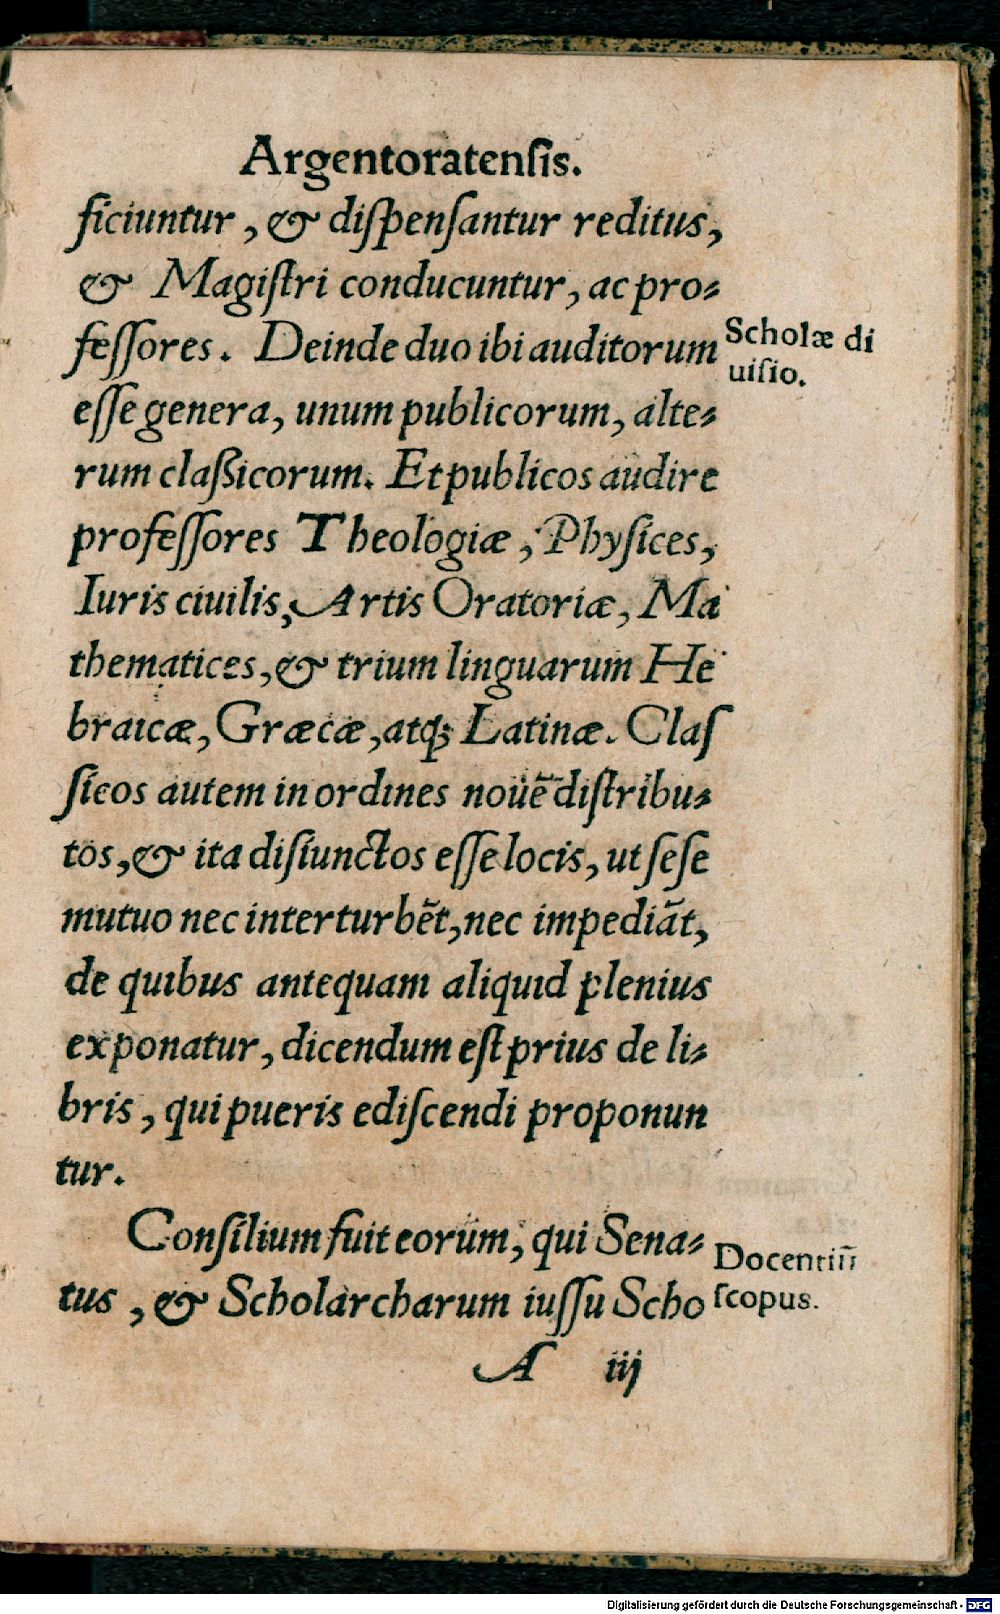 Argentoratensis.
ficiuntur, & dispensantur reditus,
& Magistri conducuntur, ac pro-
fessores. Deinde duo ibi auditorum
Scholæ di
uisio.
esse genera, unum publicorum, alte-
rum claßicorum. Et publicos audire
professores Theologiæ, Physices,
Iuris ciuilis, Artis Oratoriæ, Ma
thematices, & trium linguarum He
braicæ, Græcæ, atq; Latinæ. Clas
sicos autem in ordines nouē distribu-
tos, & ita disiunctos esse locis, ut sese
mutuo nec interturbēt, nec impediāt,
de quibus antequam aliquid plenius
exponatur, dicendum est prius de li-
bris, qui pueris ediscendi proponun
tur.
Consilium fuit eorum, qui Sena-
Docentiū
tus, & Scholarcharum iussu Scho
scopus.
A iij
Digitalisierung gefördert durch die Deutsche Forschungsgemeinschaft - DFG